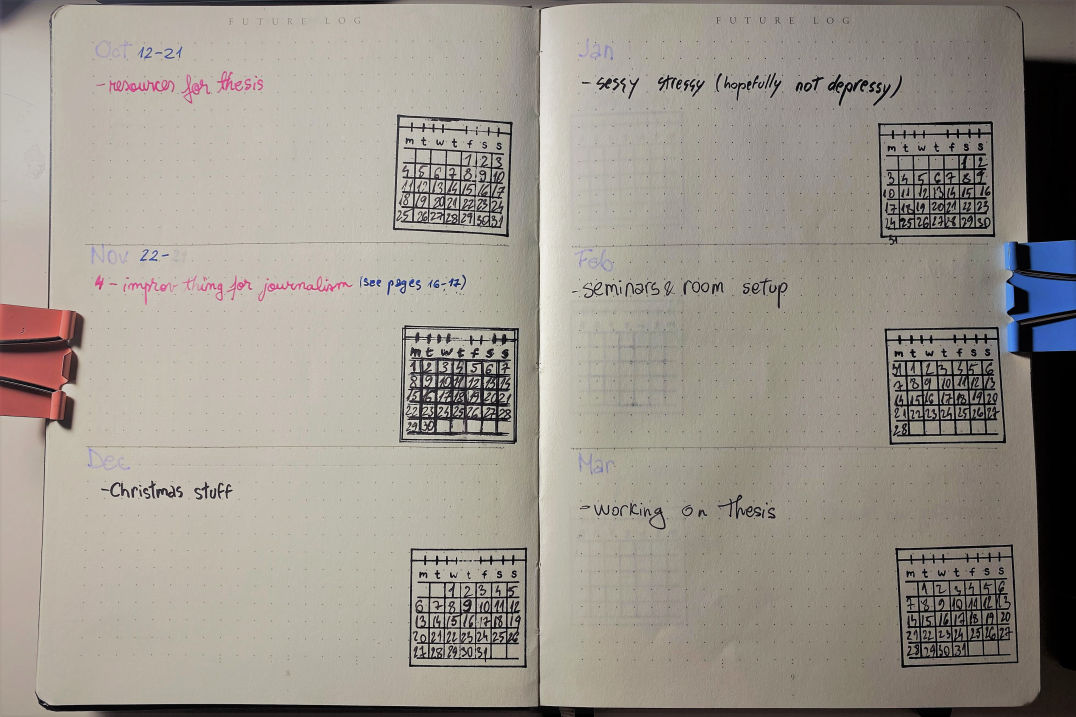 FUTURE LOG
Oct 12-21
- resources for thesis
m t w t f s s
1 2 3
4 5 6 7 8 9 10
11 12 13 14 15 16 17
18 19 20 21 22 23 24
25 26 27 28 29 30 31
Nov 22-
4 - improv thing for journalism (see pages 16-17)
m t w t f s s
1 2 3 4 5 6 7
8 9 10 11 12 13 14
15 16 17 18 19 20 21
22 23 24 25 26 27 28
29 30
Dec
- Christmas stuff
m t w t f s s
1 2 3 4 5
6 7 8 9 10 11 12
13 14 15 16 17 18 19
20 21 22 23 24 25 26
27 28 29 30 31
8
FUTURE LOG
Jan
- sessy stressy (hopefully not depressy)
m t w t f s s
1 2
3 4 5 6 7 8 9
10 11 12 13 14 15 16
17 18 19 20 21 22 23
24 25 26 27 28 29 30
31
Feb
- seminars & room setup
m t w t f s s
1 2 3 4 5 6
7 8 9 10 11 12 13
14 15 16 17 18 19 20
21 22 23 24 25 26 27
28
Mar
- working on thesis
m t w t f s s
1 2 3 4 5 6
7 8 9 10 11 12 13
14 15 16 17 18 19 20
21 22 23 24 25 26 27
28 29 30 31
9